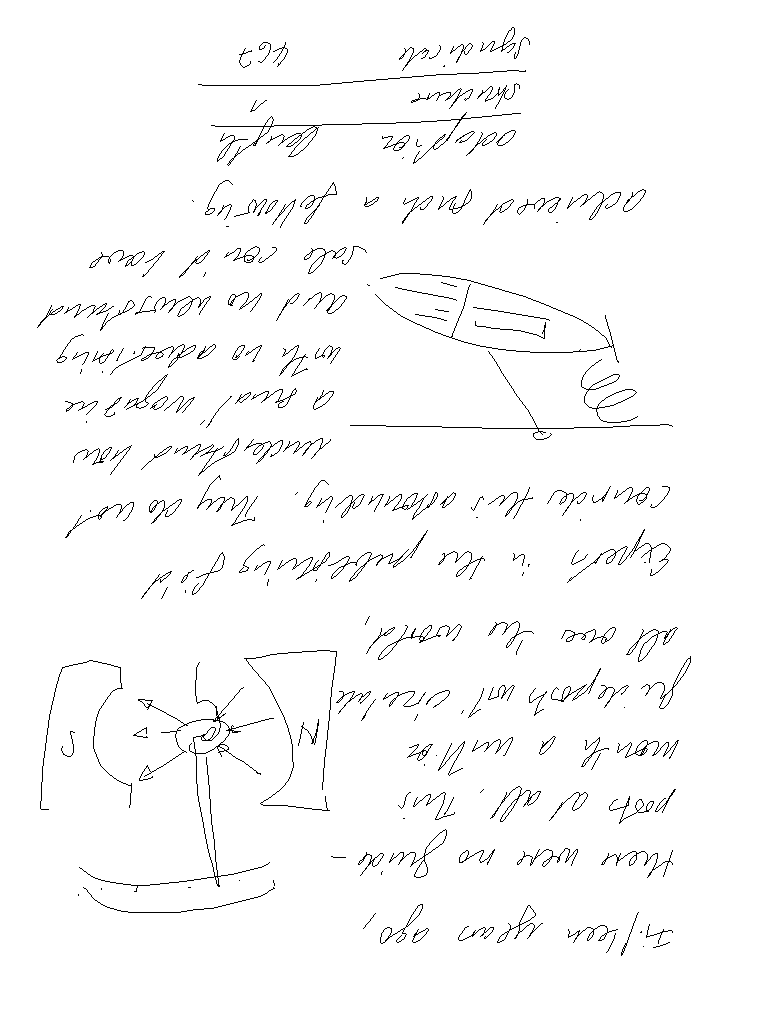 Fifteen years ago,
there were no guide-
posts at all. This
month a million
guideposts will circulate
all over the world,
Experts in the publishing field
consider this astounding. They do not
understand how
a small magazine
with no advertising
and no newsstand
sale could have
achieved such a following.
adaption length
structure 1
syndicate 467
S N